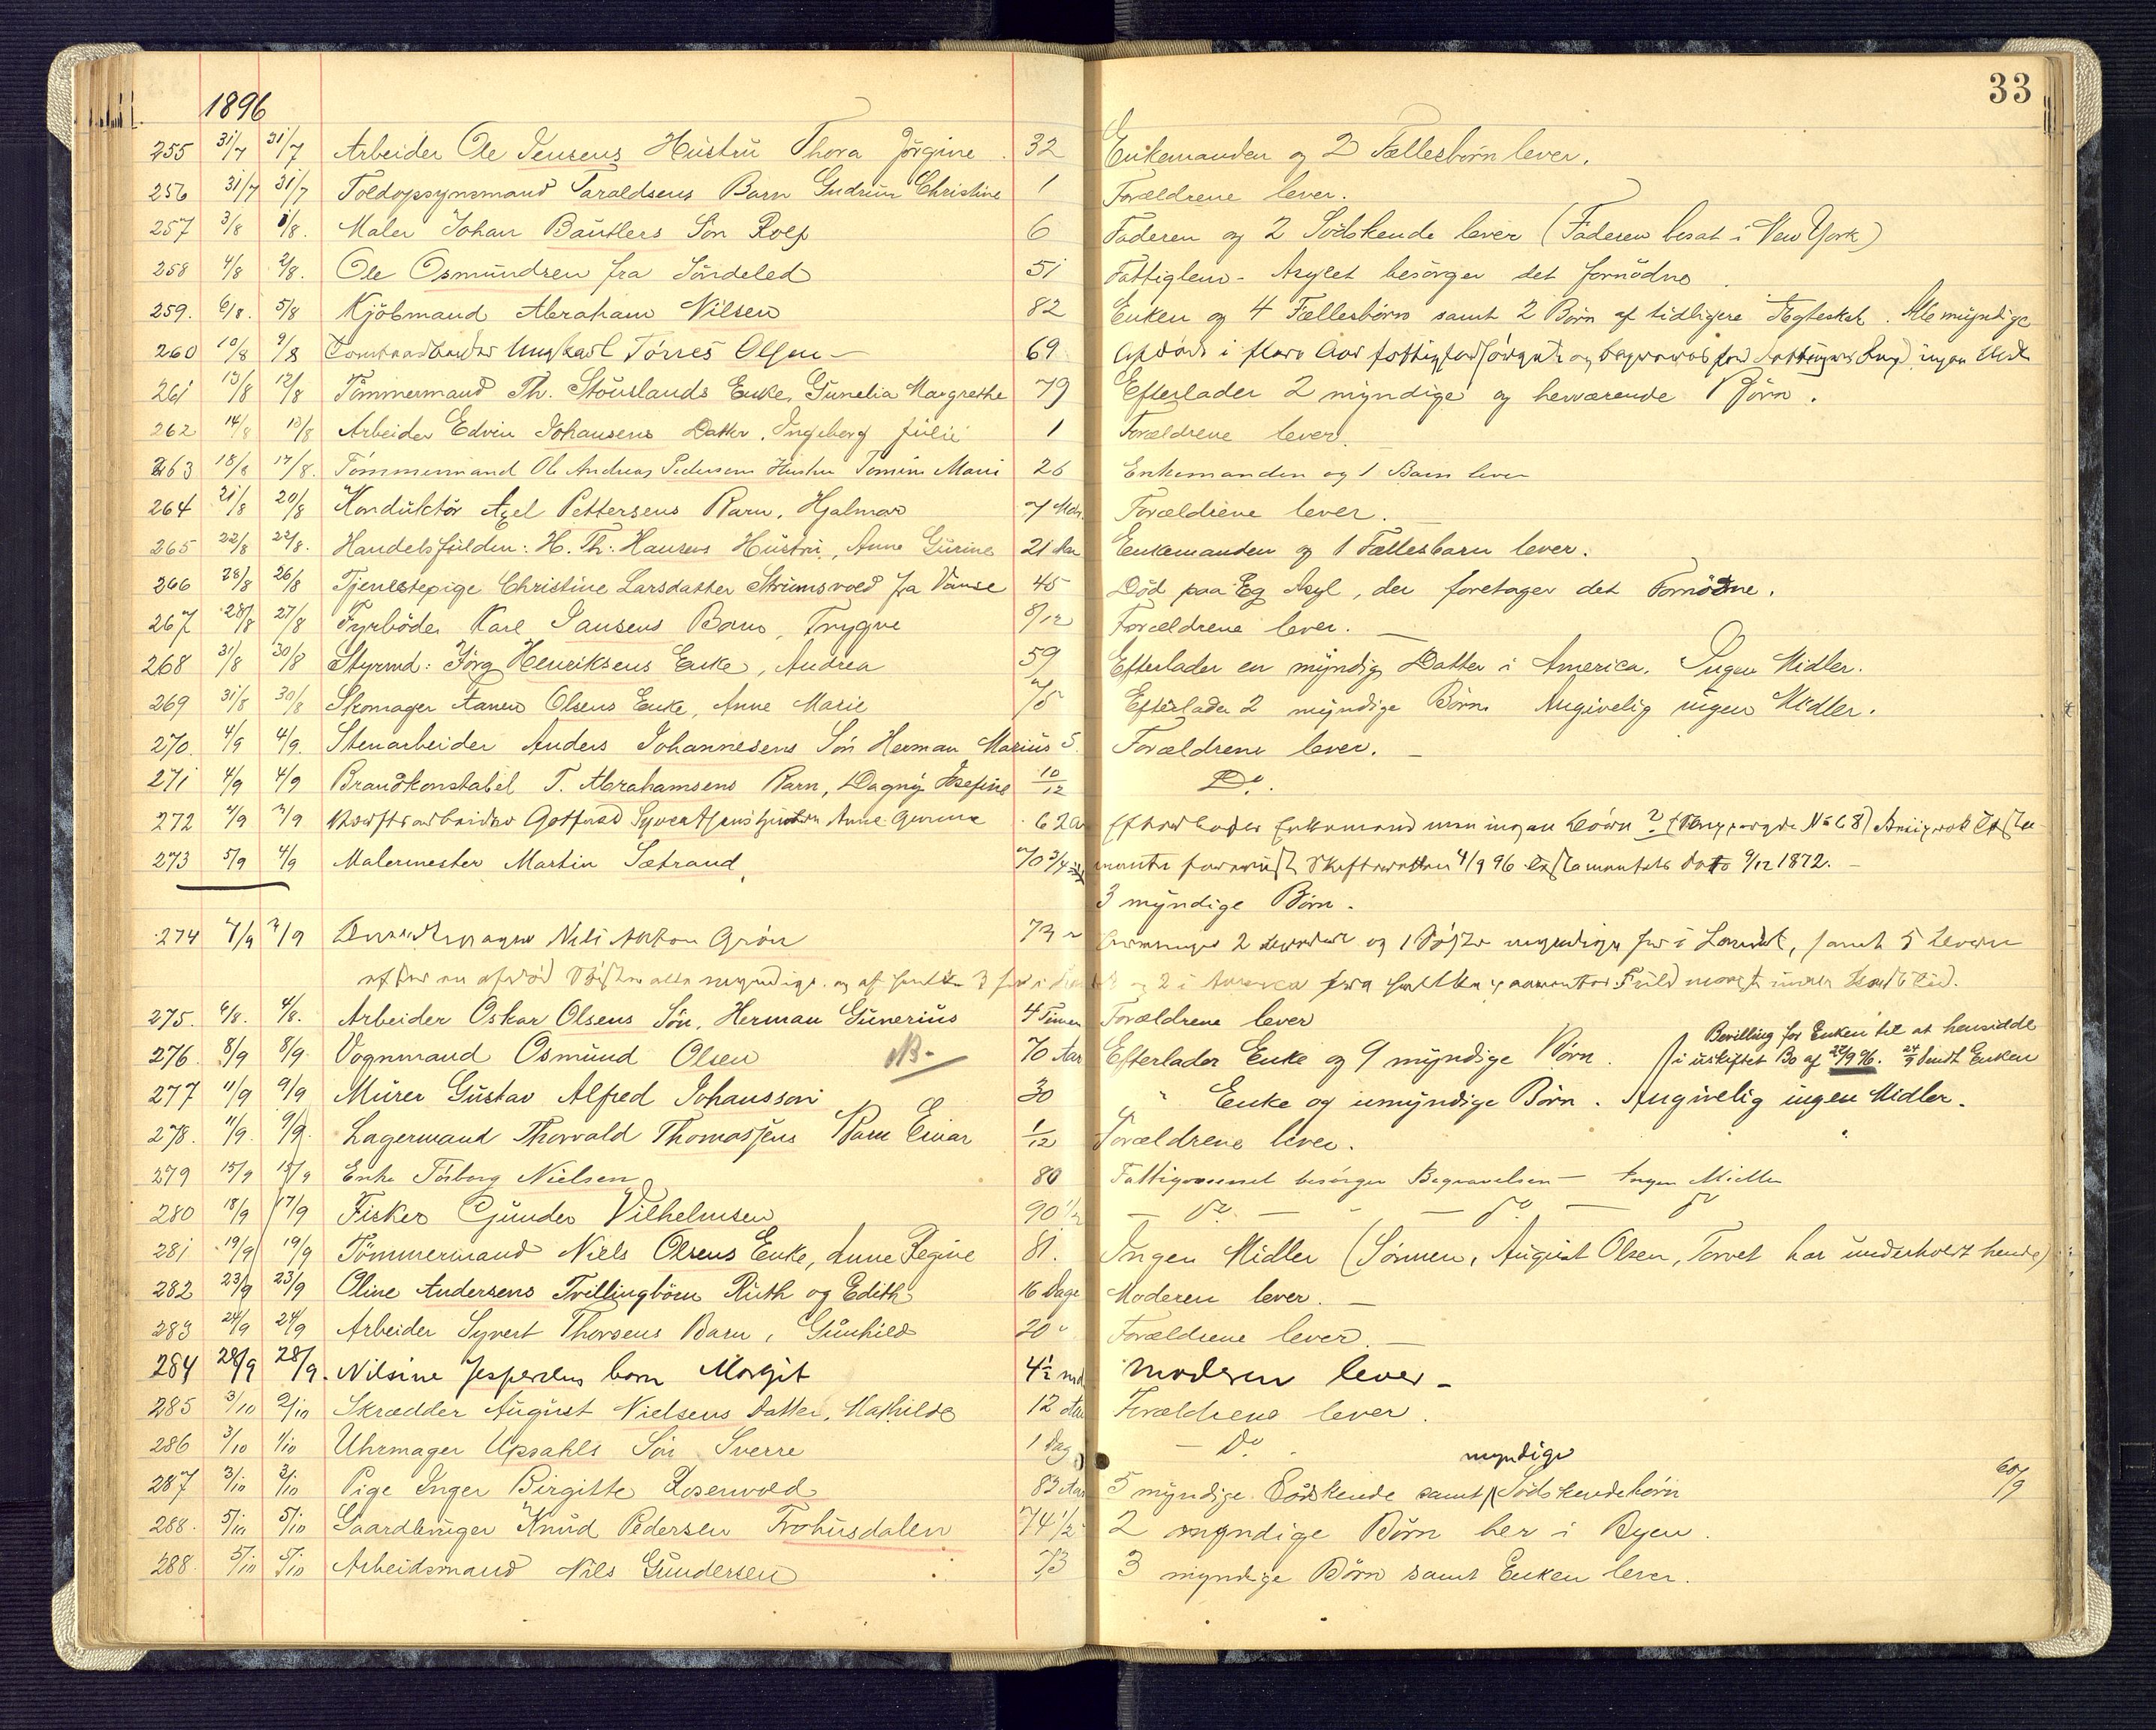 33
1896
255 31/7 31/7 Arbeider Ole Jensens Hustru Thora Jörgine 32 Enkemanden og 2 Fællesbörn lever.
256 31/7 31/7 Toldopsynsmand Taraldsens Barn Gudrun Christine 1 Forældrene lever.
257 3/8 1/8. Maler Johan Bautlers Sön Rolf 6 Faderen og 2 Södskende lever (Faderen bosat i New York)
258 4/8 2/8. Ole Osmundsen fra Söndeled 51 Fattiglem - Asylet besörger det fornödne.
259. 6/8. 5/8 Kjöbmand Abraham Nilsen 82 Enken og 4 Fællesbörn samt 2 Börn af tidligere Ægteskab. Alle myndige
260 10/8 9/8 Ungkarl Törres Olsen 69 i flere Aar og ingen
261 13/8 12/8 Tömmermand Th. Stouslands Enke, Gunelia Margrethe 79 Efterlader 2 myndige og herværende Börn.
262 14/8 13/8 Arbeider Edvin Johansens Datter, Ingeborg Julie 1 Forældrene lever.
263 18/8 17/8. Tömmermand Ole Andreas Pedersens Hustru Tomine Marie 26 Enkemanden og 1 Barn lever
264 21/8 20/8 Konduktör Axel Pettersens Barn, Hjalmar 7 Mdr. Forældrene lever.
265 22/8 22/8. Handelsfuldm: H. Th: Hansens Hustru, Anne Gurine 21 Aar Enkemanden og 1 Fællesbarn lever.
266 28/8 26/8 Tjenestepige Christine Larsdatter Strumsvold fra Vanse 45 Död paa Eg Asyl, der foretager det Fornödne.
267 28/8 27/8 Fyrböder Karl Jansens Barn, Trygve 8/12 Forældrene lever.
268 31/8 30/8 Styrmd: Jörg Henriksens Enke, Andrea 59 Efterlader en myndig Datter i America. Ingen Midler.
269 31/8 30/8 Skomager Aanen Olsens Enke, Anne Marie 75 Efterlader 2 myndige Börn. Angivelig ingen Midler.
270. 4/9 4/9. Stenarbeider Anders Johannesens Sön Herman Marius 5. Forældrene lever.
271 4/9 4/9 Brandkonstabel T. Abrahamsens Barn, Dagny Josefine 10/12 Do.
272 4/9 3/9 Værftsarbeider Gotfred Syvertsens Hustru Anne Gurine 62 Efterlader Enkemand men ingen Börn ? No 68)
273 5/9 4/9 Malermester Martin Sætrand 70 3/4 Skifteretten 4/9 96 dato 9/12 1872.
3 myndige Börn.
274 7/9 7/9 Nils Anton Grön 73 2 og 1 Söster myndige her i Landet, samt 5 Börn
efter en afdöd Söster alle myndige og af hvilke 3 her i og 2 i America
275. 6/8. 4/8. Arbeider Oskar Olsens Sön, Herman Gunerius 4 Timer Forældrene lever
276. 8/9 8/9 Vognmand Osmund Olsen NB. 70 Aar Efterlader Enke og 9 myndige Börn. Bevilling for Enken til at hensidde
i uskiftet Bo af 22/9 96. 24/9 sendt Enken
277 11/9 9/9 Murer Gustav Alfred Johansson 30 " Enke og umyndige Börn. Angivelig ingen Midler.
278. 11/9. 9/9. Lagermand Thorvald Thomassens Barn Einar 1/12 Forældrene lever.
279 15/9 15/9 Enke Torborg Nielsen 80 Fattigvæsenet besörger Begravelsen - Ingen Midler
280 18/9 17/9 Fisker Gunder Vilhelmsen 90 1/2 - Do. - - Do. - Do
281 19/9 19/9 Tömmermand Niels Olsens Enke, Anne Regine 81. Ingen Midler (Sönnen, August Olsen, Torvet har underholdt hende)
282 23/9 23/9 Oline Andersens Tvillingbörn Ruth og Edith 16 Dage Moderen lever.
283 24/9 24/9 Arbeider Syvert Thorsens Barn, Gunhild 20 " Forældrene lever.
284 28/9 28/9. Nilsine Jespersens barn Margit 4½ md Moderen lever -
285 3/10 2/10 Skrædder August Nielsens Datter, Mathilde 12 Aar Forældrene lever.
286 3/10 1/10 Uhrmager Upsahls Sön Sverre 1 Dag - Do.
287 3/10 2/10 Pige Inger Birgitte Rosenvold 83 Aar 5 myndige Södskende samt myndige Södskendebörn
288. 5/10 5/10 Gaardbruger Knud Pedersen Trohusdalen 74 1/2 2 myndige Börn her i Byen.
288. 5/10 5/10 Arbeidsmand Nils Gundersen 73 3 myndige Börn samt Enken lever.